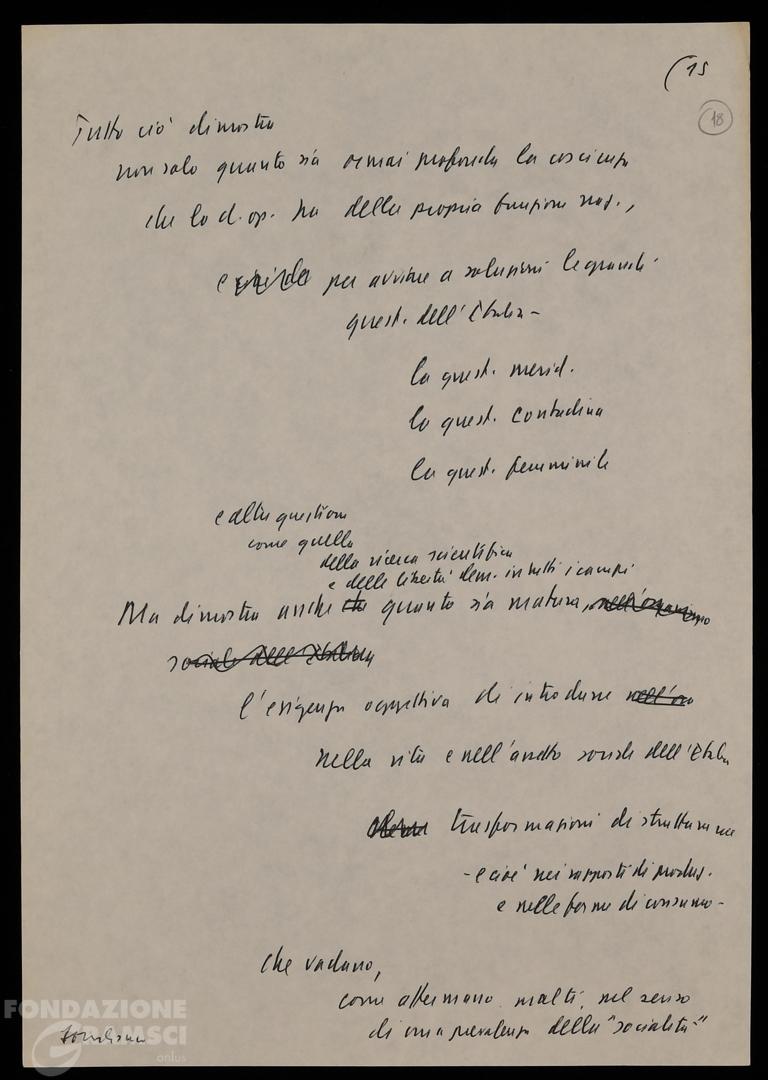 (15
18
Tutto ciò dimostra
non solo quanto sia ormai profonda la coscienza
che la cl. op. ha della propria funzione naz.,
e per avviare a soluzioni le grandi
quest. dell'Italia -
la quest. merid.
la quest. contadina
la quest. femminile
e altre questioni
come quella
della ricerca scientifica
e delle libertà dem. in tutti i campi
Ma dimostra anche che quanto sia matura, nell'organismo
sociale dell'Italia
l'esigenza oggettiva di introdurre nell'or
nella vita e nell'assetto sociale dell'Italia
trasformazioni di struttura
- e cioè nei rapporti di produz.
e nelle forme di consumo -
che vadano,
come affermano molti, nel senso
di una prevalenza della "socialità"
FONDAZIONE
GRAMSCI
onlus